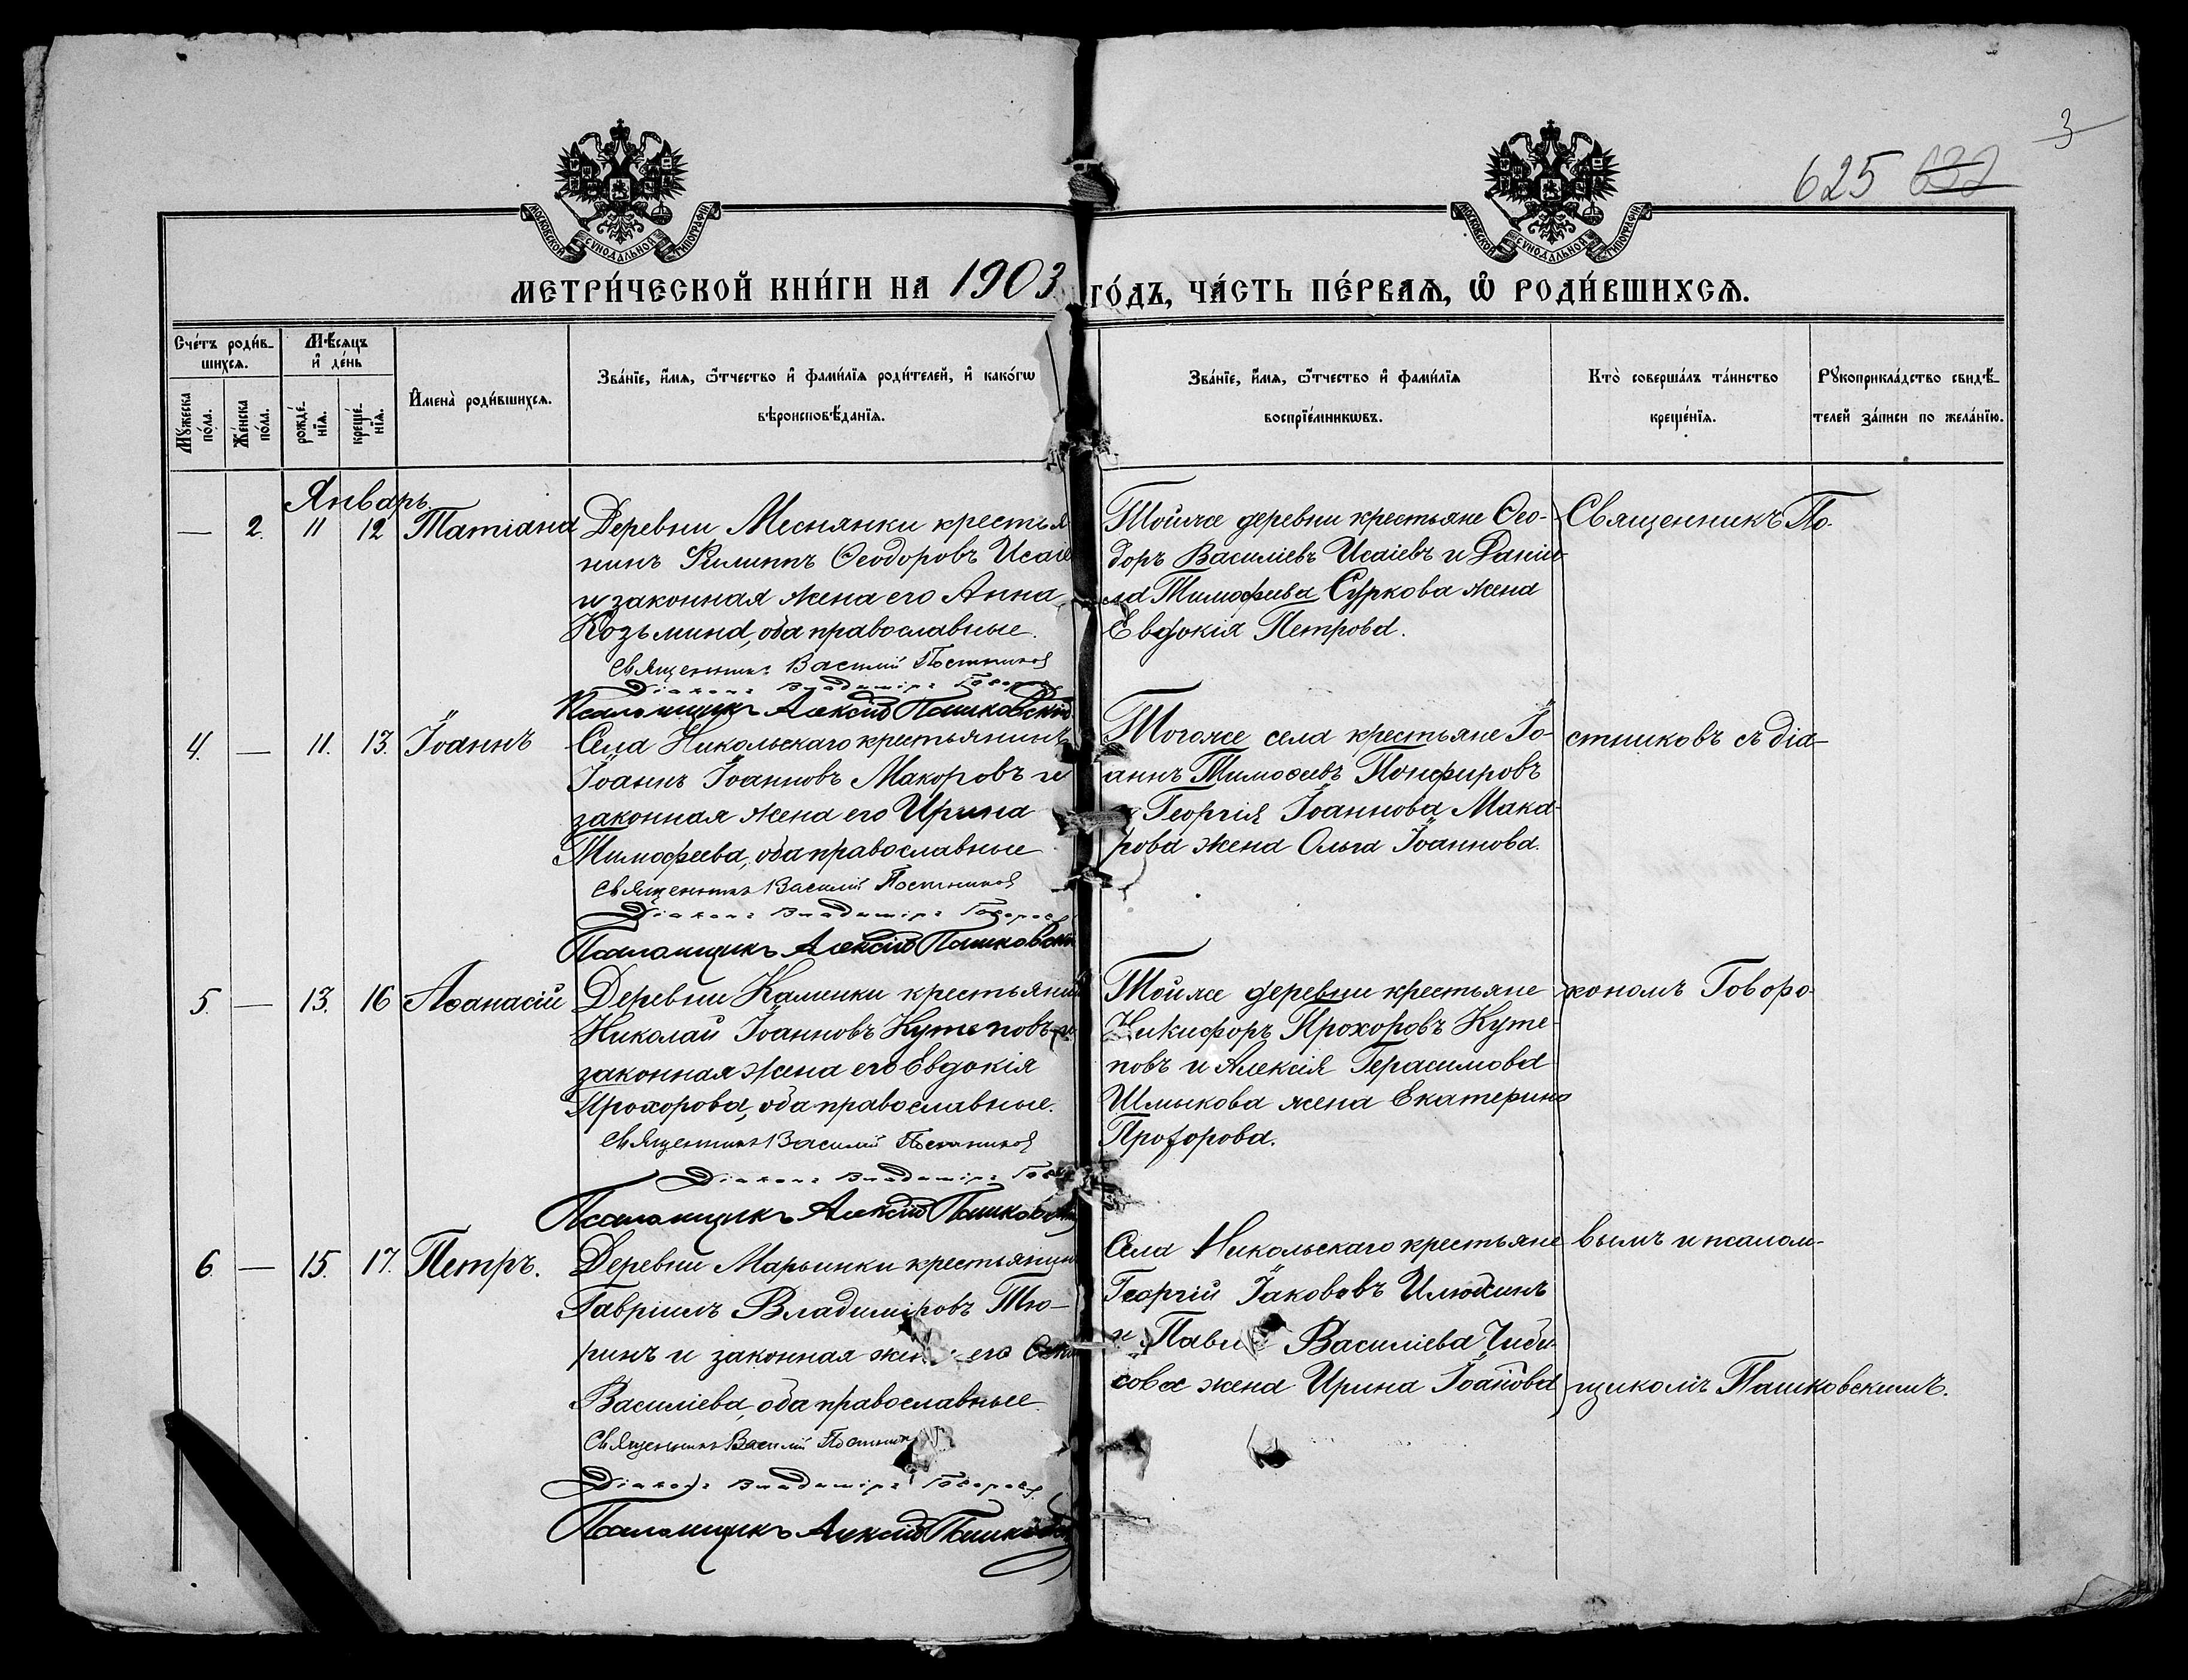 3
625 632
МОСКОВСКОЙ СѴНОДАЛЬНОЙ ТИПОГРАФІИ
МОСКОВСКОЙ СѴНОДАЛЬНОЙ ТИПОГРАФІИ
МЕТРИ́ЧЕСКОЙ КНИ́ГИ НА 1903 ГО́ДЪ, ЧА́СТЬ ПЕ́РВАѦ, Ѽ РОДИ́ВШИХСѦ.
Сче́тъ роди́в-
шихсѧ.
Мѣ́сѧцъ
и҆ де́нь
Мꙋжеска
по́ла.
Же́нска
по́ла.
рожде́-
нїѧ.
креще́-
нїѧ.
И҆мена̀ роди́вшихсѧ.
Зва́нїе, и҆́мѧ, ѻ҆́тчество и҆ фами́лїѧ роди́телей, и҆ како́гѡ
вѣроисповѣ́данїѧ.
Зва́нїе, и҆́мѧ, ѻ҆́тчество и҆ фами́лїѧ
воспрїе́мникѡвъ.
Кто̀ соверша́лъ та́инство
креще́нїѧ.
Рꙋкоприкла́дство свидѣ́-
телей за́писи по жела́нїю.
Январь.
— 2. 11 12 Татіана
Деревни Меснянки крестья
нинъ Филиппъ Ѳеодоровъ Исаіе
и законная жена его Анна
Козьмина, оба православные.
Священникъ Василій Постников
Діаконъ Владиміръ Говоровъ
Псаломщикъ Алексій Пашковскій
Тойже деревни крестьяне Ѳео-
доръ Василіевъ Исаіевъ и Даніи-
ла Тимофеева Суркова жена
Евдокія Петрова.
Священникъ По-
4. — 11. 13. Іоаннъ
Села Никольскаго крестьянинъ
Іоаннъ Іоанновъ Макоровъ и
законная жена его Ирина
Тимофеева, оба православные
Священникъ Василій Постников
Діаконъ Владиміръ Говоровъ
Псаломщикъ Алексій Пашковскій
Тогоже села крестьяне Іо-
аннъ Тимоѳеевъ Понфировъ
Георгія Іоаннова Мака-
рова жена Ольга Іоаннова.
стниковъ съ діа-
5. — 13. 16 Аѳанасій
Деревни Каменки крестьянин
Николай Іоанновъ Кутеповъ и
законная жена его Евдокія
Прохорова, оба православные.
Священникъ Василій Постников
Діаконъ Владиміръ Гово
Псаломщикъ Алексій Пашковскій
Тойже деревни крестьяне
Никифоръ Прохоровъ Куте-
повъ и Алексія Герасимова
Шмыкова жена Екатерина
Прохорова.
кономъ Говоро-
6. — 15. 17. Петръ.
Деревни Марьинки крестьянин
Гавріилъ Владиміровъ Тю-
ринъ и законная жена его
Василіева, оба православные
Священникъ Василій Постник
Діаконъ Владиміръ Говоровъ
Псаломщикъ Алексій Пашковск
Села Никольскаго крестьяне
Георгій Іаковлевъ Илюхинъ
и Павла Василіева Чиби-
сова жена Ирина Іоанова
вымъ и псалом-
щикомъ Пашковскимъ.